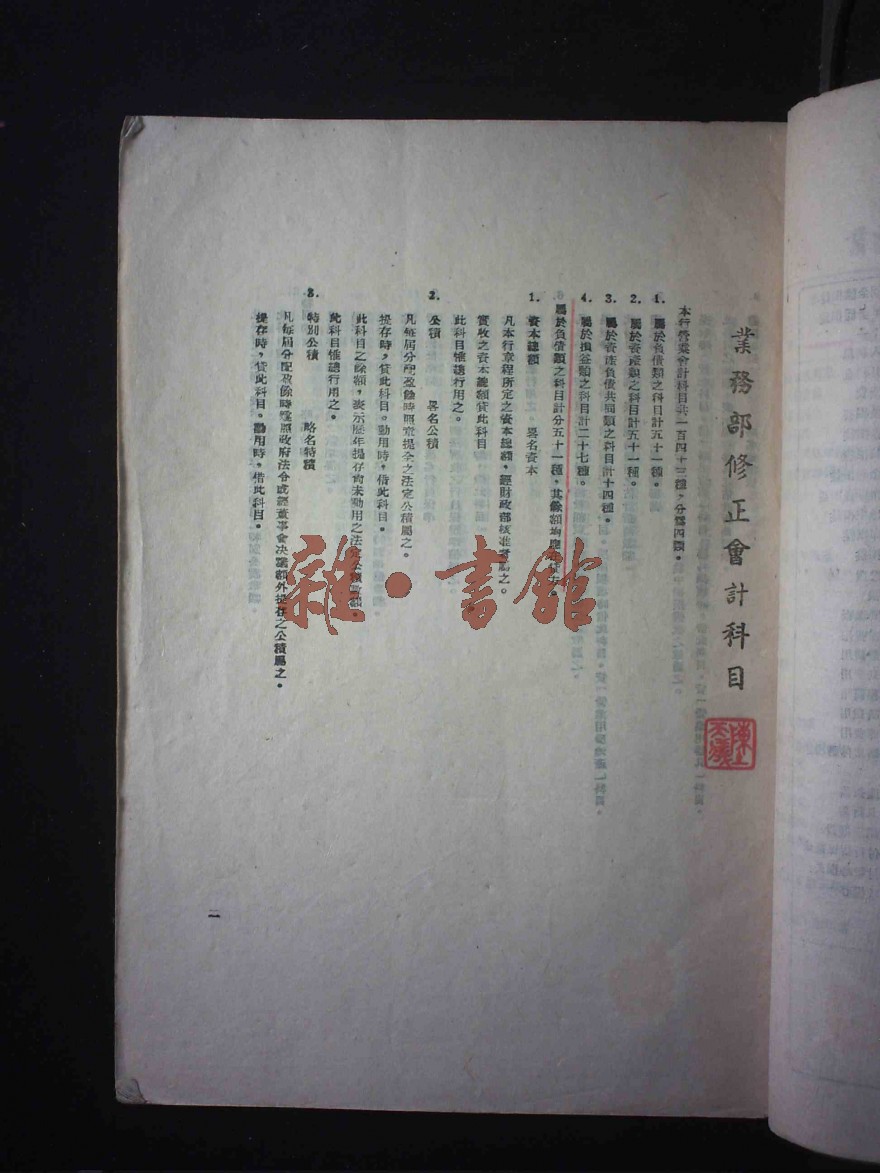 業務部修正會計科目
本行營業會計科目共一百四十三種，分爲四類。
1. 屬於負債類之科目計五十一種。
2. 屬於資產類之科目計五十一種。
3. 屬於資產負債共同類之科目計十四種。
4. 屬於損益類之科目計二十七種。
屬於負債類之科目計分五十一種，其餘額均應
1. 資本總額 畧名資本
凡本行章程所定之資本總額，經財政部核准者屬之。
實收之資本總額貸此科目
此科目惟總行用之。
2. 公積 畧名公積
凡每屆分配盈餘時照章提全之法定公積屬之。
提存時，貸此科目。動用時，借此科目。
此科目之餘額，表示歷年提存尙未動用之法定公積
此科目惟總行用之。
3. 特別公積 略名特積
凡每屆分配盈餘時遵照政府法令或經董事會決議額外提存之公積屬之。
提存時，貸此科目。動用時，借此科目。
二
雜·書館